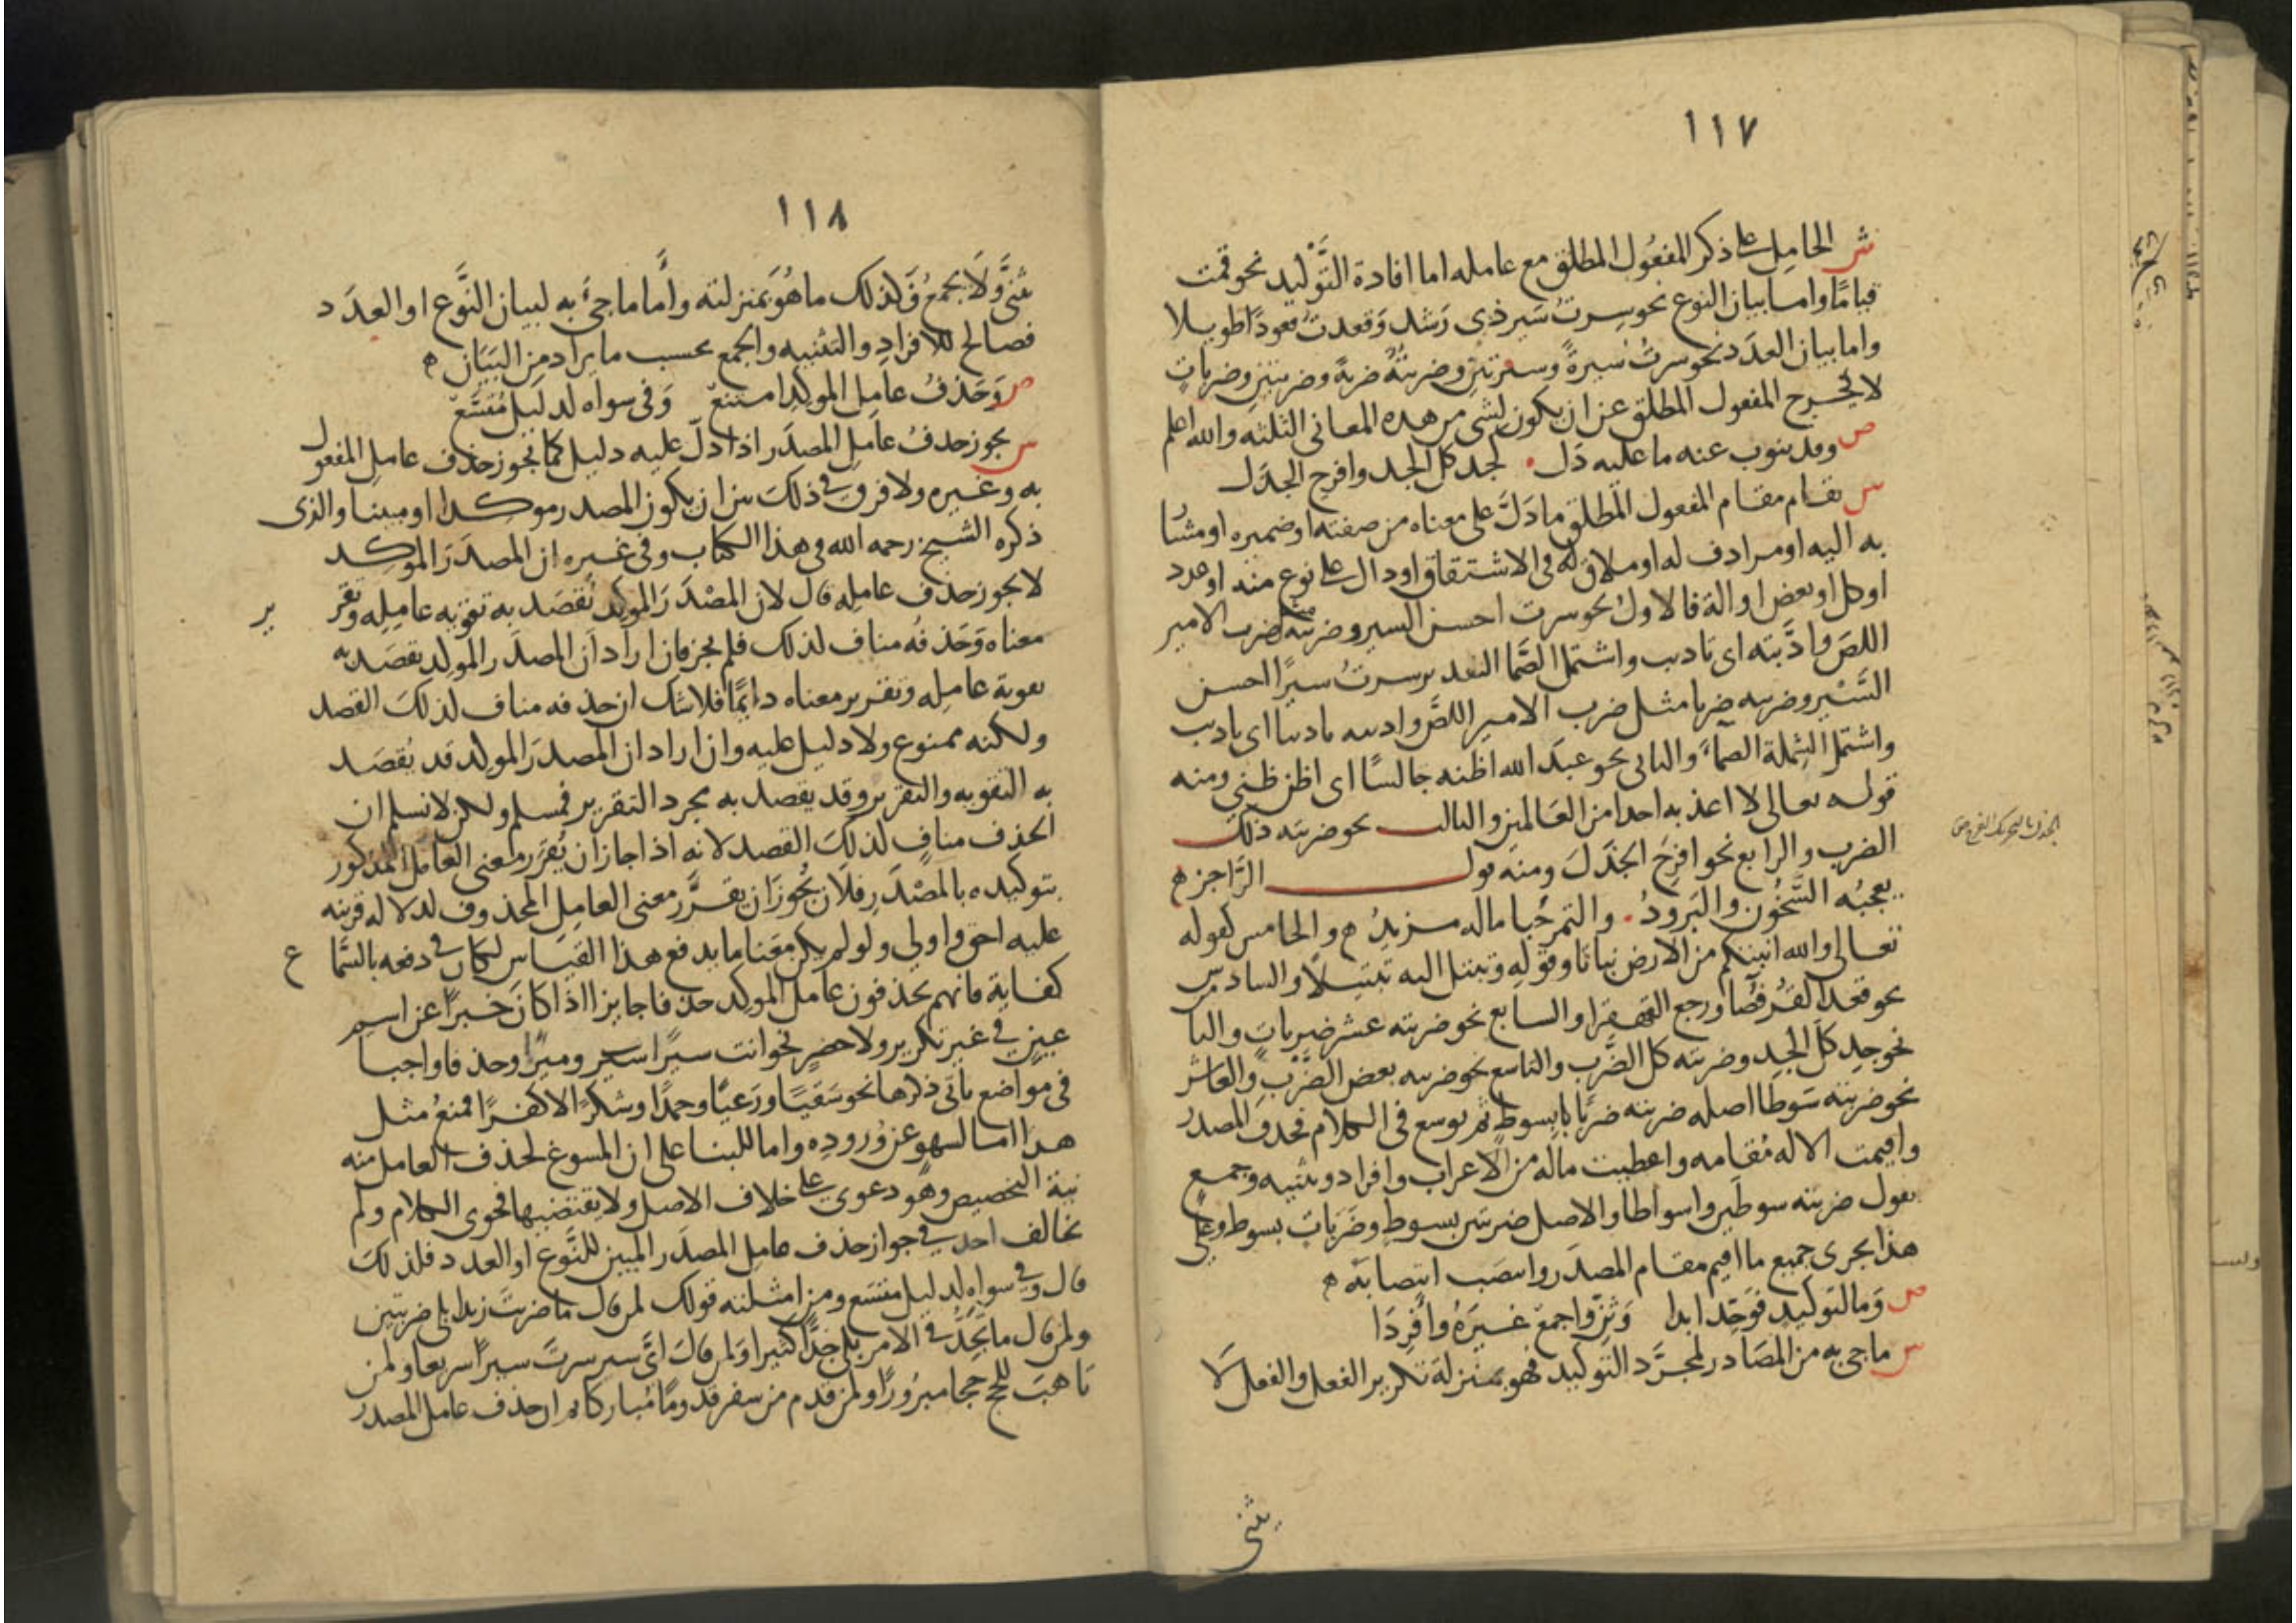 ١١٧
ش الحامل على ذكر المفعُول المطلق مع عامله اما افادة التَّوْكيد نحو قمت
قيامًا واما بيان النوع نحو سِرتُ سَيرَ ذي رَشَد وَقعدتُ قعودًا طويلا
واما بيان العدَد نحو سرتُ سَيرةً وسيرَتين وضربتُهُ ضربةً وضربتين وضربات
لا يخرج المفعول المطلق عن ان يكون لشي من هده المعاني الثلثه والله اعلم
ص وقد ينوب عنه ما عليه دَل كجد كل الجد وافرح الجذَل
س يقام مقام المفعول المطلق ما دَلَّ على معناه من صفته او ضميره او مشارٍ
به اليه او مرادف له او ملاقٍ له في الاشتقاق او دال على نوع منه او عدد
او كل او بعض او الة فالاول نحو سرت احسن السير وضربته ضرب الامير
اللصَّ واذَّبته اي تاديب واشتمل الصَّما التقدير سرتُ سيرًا احسن
السَّيْر وضربه ضربا مثل ضرب الامير اللصَّ وادبه تاديبا اي تاديب
واشتمل الشِملة الصمآءَ والثاني نحو عبدَ الله اظنه جالسًا اي اظن ظني ومنه
قوله تعالى لا اعذبه احدا من العَالمين والثالث نحو ضربته ذلك
الضرب والرابع نحو افرَح الجذَلَ ومنه قول الرَّاجز ه
يعجبُه السَّخُون والبَرودُ والتمر حُبا ماله مزيدُ ه والخامس كقوله
تعالى والله انبتكم من الارض نباتًا وقوله وتبتل اليه تبتيلًا والسادس
نحو قعَد القُرفُصا ورجع القهقرا والسابع نحو ضربته عشر ضرباتٍ والثا
نحو جِد كلَّ الجِد وضربته كل الضَّرب والتاسع نحو ضربه بعض الضَّرْبِ والعاشر
نحو ضربته سَوطا اصله ضربته ضربًا بسوطٍ ثم توسع في الكلام فحذف المصدر
واقيمت الاله مُقامه واعطيت ماله من الاعراب وافراد وتثنيه وجمع
تقول ضربته سوطين واسواطا والاصل ضربتين بسوطٍ وضَرَباتٍ بسوط وعلى
هذا يجري جميع ما اقيم مقام المصدَر وانتصَب انتصابَه ه
ص وَما لتوكيدٍ فَوَحِّد ابدا وَثَنِّ واجمعْ غَيرَهُ وأفرِدَا
س ما جي به من المصَادر لمجرَّد التوكيد فهو بمنزلة تكرير الفعل والفعل لا
يثنى
الجذل بالتحريك الفرح
١١٨
يثنَّى وَلَا يجمعُ فَكذلك ما هُوَ بمنزلته وأمَّا ما جيءَ به لبيان النَّوع او العدَد
فصالح للافرادِ والتثنيه والجمع بحسب ما يراد من البيَان ه
ص وَحَذفُ عامِل الموكِدِ امتنعْ وَفي سواه لدليل مُتَّسَعْ
س يجوز حذفُ عامِل المصدَر اذا دلَّ عليه دليل كما يجوز حذف عامل المفعول
به وغيره ولا فرق في ذلكَ بين ان يكون المصدر موكدا او مبينا والذي
ذكره الشيخ رحمه الله في هذا الكتاب وفي غيره ان المصدَرَ الموكد
لا يجوز حذف عامله قال لان المصْدَرَ الموكد يُقصَد به تقوية عامِلِه وتقرير
معناه وَحَذفُه منافٍ لذلك فلم يجز فان اراد ان المصدَر الموكد يقصَد به
تقوية عامِله وتقرير معناه دايمًا فلا شك ان حذفه مناف لذلكَ القصد
ولكنه ممنوع ولا دليل عليه وان اراد ان المصدَرَ الموكد قد يُقصَد
به التقويه والتقرير وقد يقصد به مجرد التقرير فمسلم ولكن لا نسلم ان
الحذف منافٍ لذلكَ القصد لانه اذا جاز ان يُقرَر معنى العامل المذكور
بتوكيده بالمصْدَر فلأن يَجُوز ان يقرَّر معنى العامِلِ المحذوف لدلالة قرينه
عليه احق واولى ولو لم يكن معَنا ما يدفع هذا القيَاس لكان في دفعه بالسَّماع
كفاية فانهم يحذفون عامل الموكد حذفا جايزا اذا كان خبرًا عن اسم
عينٍ في غير تكرير ولا حصرٍ نحو انت سيرًا سير وميرًا وحذفا واجبا
في مواضع ياتي ذكرها نحو سَقيًا ورَعيًا وحمدًا وشكرًا لا كفرًا فمنعُ مثل
هذا اما لسهوٍ عن وُرودِه واما للبنا على ان المسوغ لحذف العامل منه
نية التخصيص وهو دعوى على خلاف الاصل ولا يقتضيها فحوى الكلام ولم
يخالف احد في جواز حذف عامِل المصدَر المبين للنَّوع او العدد فلذلكَ
قال وفي سواه لدليل متسَع ومن امثلته قولك لمن قال ما ضربتَ زيدا بلى ضربتين
ولمن قال ما تَجِدُّ في الامر بلى جِدًّا كثيرا وَلمن قالَ ايَّ سير سرتَ سيرًا سريعا ولمن
تاهبَ للحج حجا مبرُورًا ولمن قدم من سفر قدومًا مُباركا ان حذف عامل المصدر